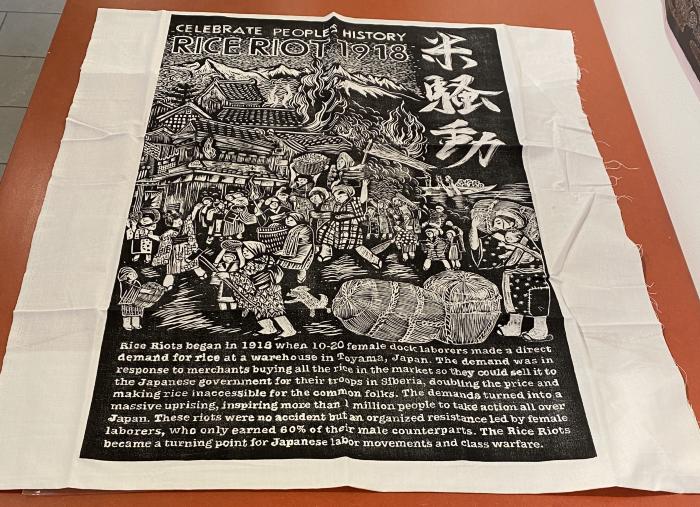 CELEBRATE PEOPLE'S HISTORY
RICE RIOT 1918
米騒動
Rice Riots began in 1918 when 10-20 female dock laborers made a direct
demand for rice at a warehouse in Toyama, Japan. The demand was in
response to merchants buying all the rice in the market so they could sell it to
the Japanese government for their troops in Siberia, doubling the price and
making rice inaccessible for the common folks. The demands turned into a
massive uprising, inspiring more than 1 million people to take action all over
Japan. These riots were no accident but an organized resistance led by female
laborers, who only earned 60% of their male counterparts. The Rice Riots
became a turning point for Japanese labor movements and class warfare.